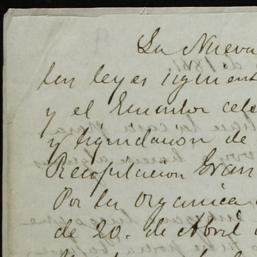 La Nueva
las leyes siguient
y el Ecuador cele
y liquidacion de
Recopilacion Gran
Por la organica
de 20. de Abril